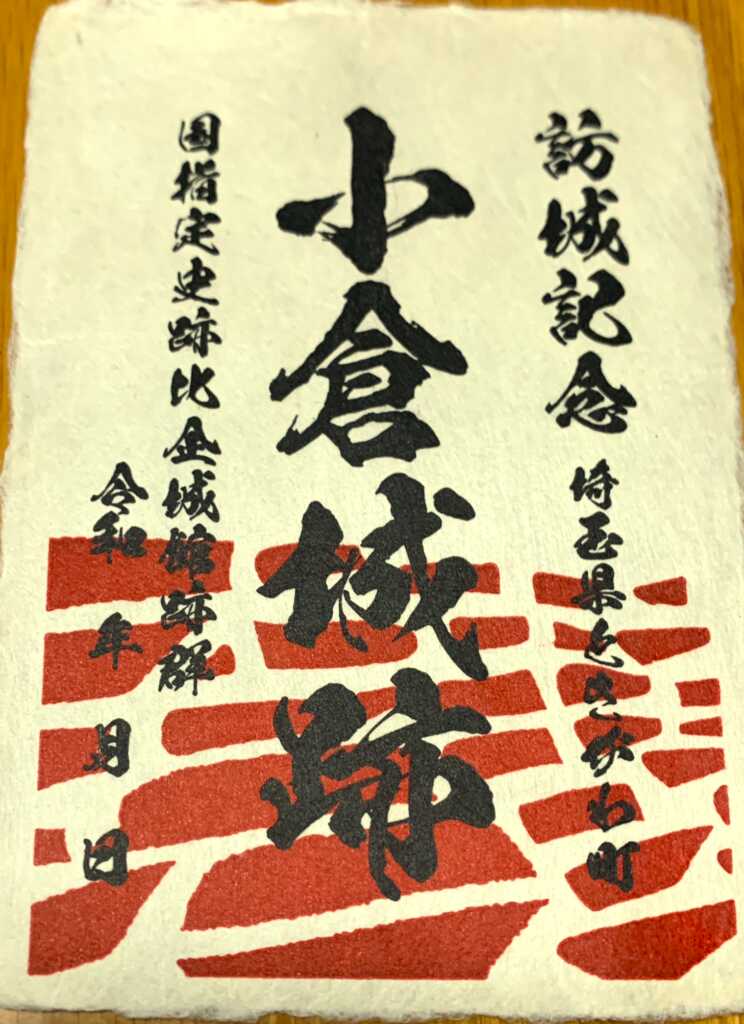 訪城記念 埼玉県ときがわ町
小倉城跡
国指定史跡比企城館跡群
令和 年 月 日